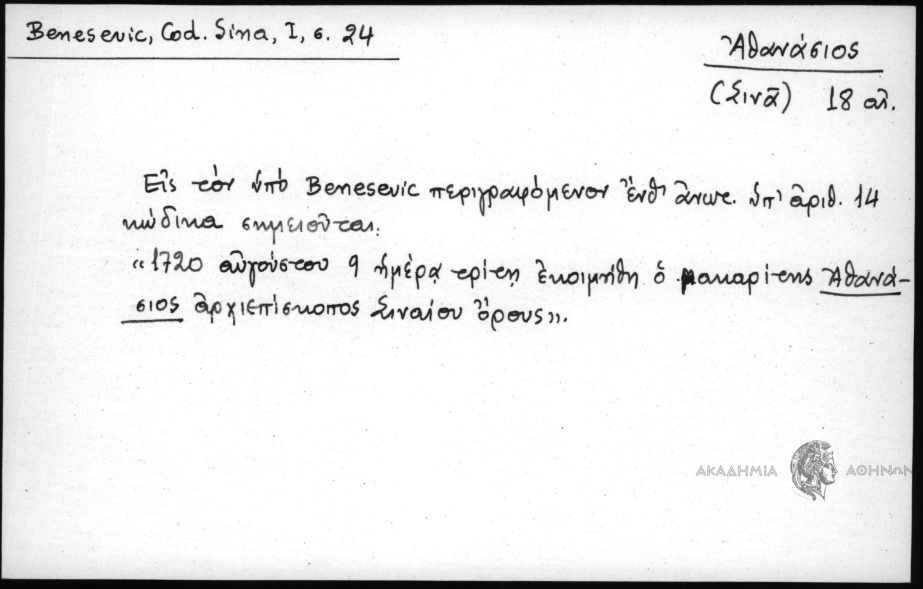 Benesevic, Cod. Sina, I, σ. 24
Ἀθανάσιος
(Σινᾶ) 18 αἰ.
Εἰς τὸν ὑπὸ Benesevic περιγραφόμενον ἔνθ' ἄνωτ. ὑπ' ἀριθ. 14
κώδικα σημειοῦται:
«1720 αὐγούστου 9 ἡμέρᾳ τρίτῃ ἐκοιμήθη ὁ μακαρίτης Ἀθανά-
σιος ἀρχιεπίσκοπος Σιναίου ὄρους».
ΑΚΑΔΗΜΙΑ ΑΘΗΝΩΝ